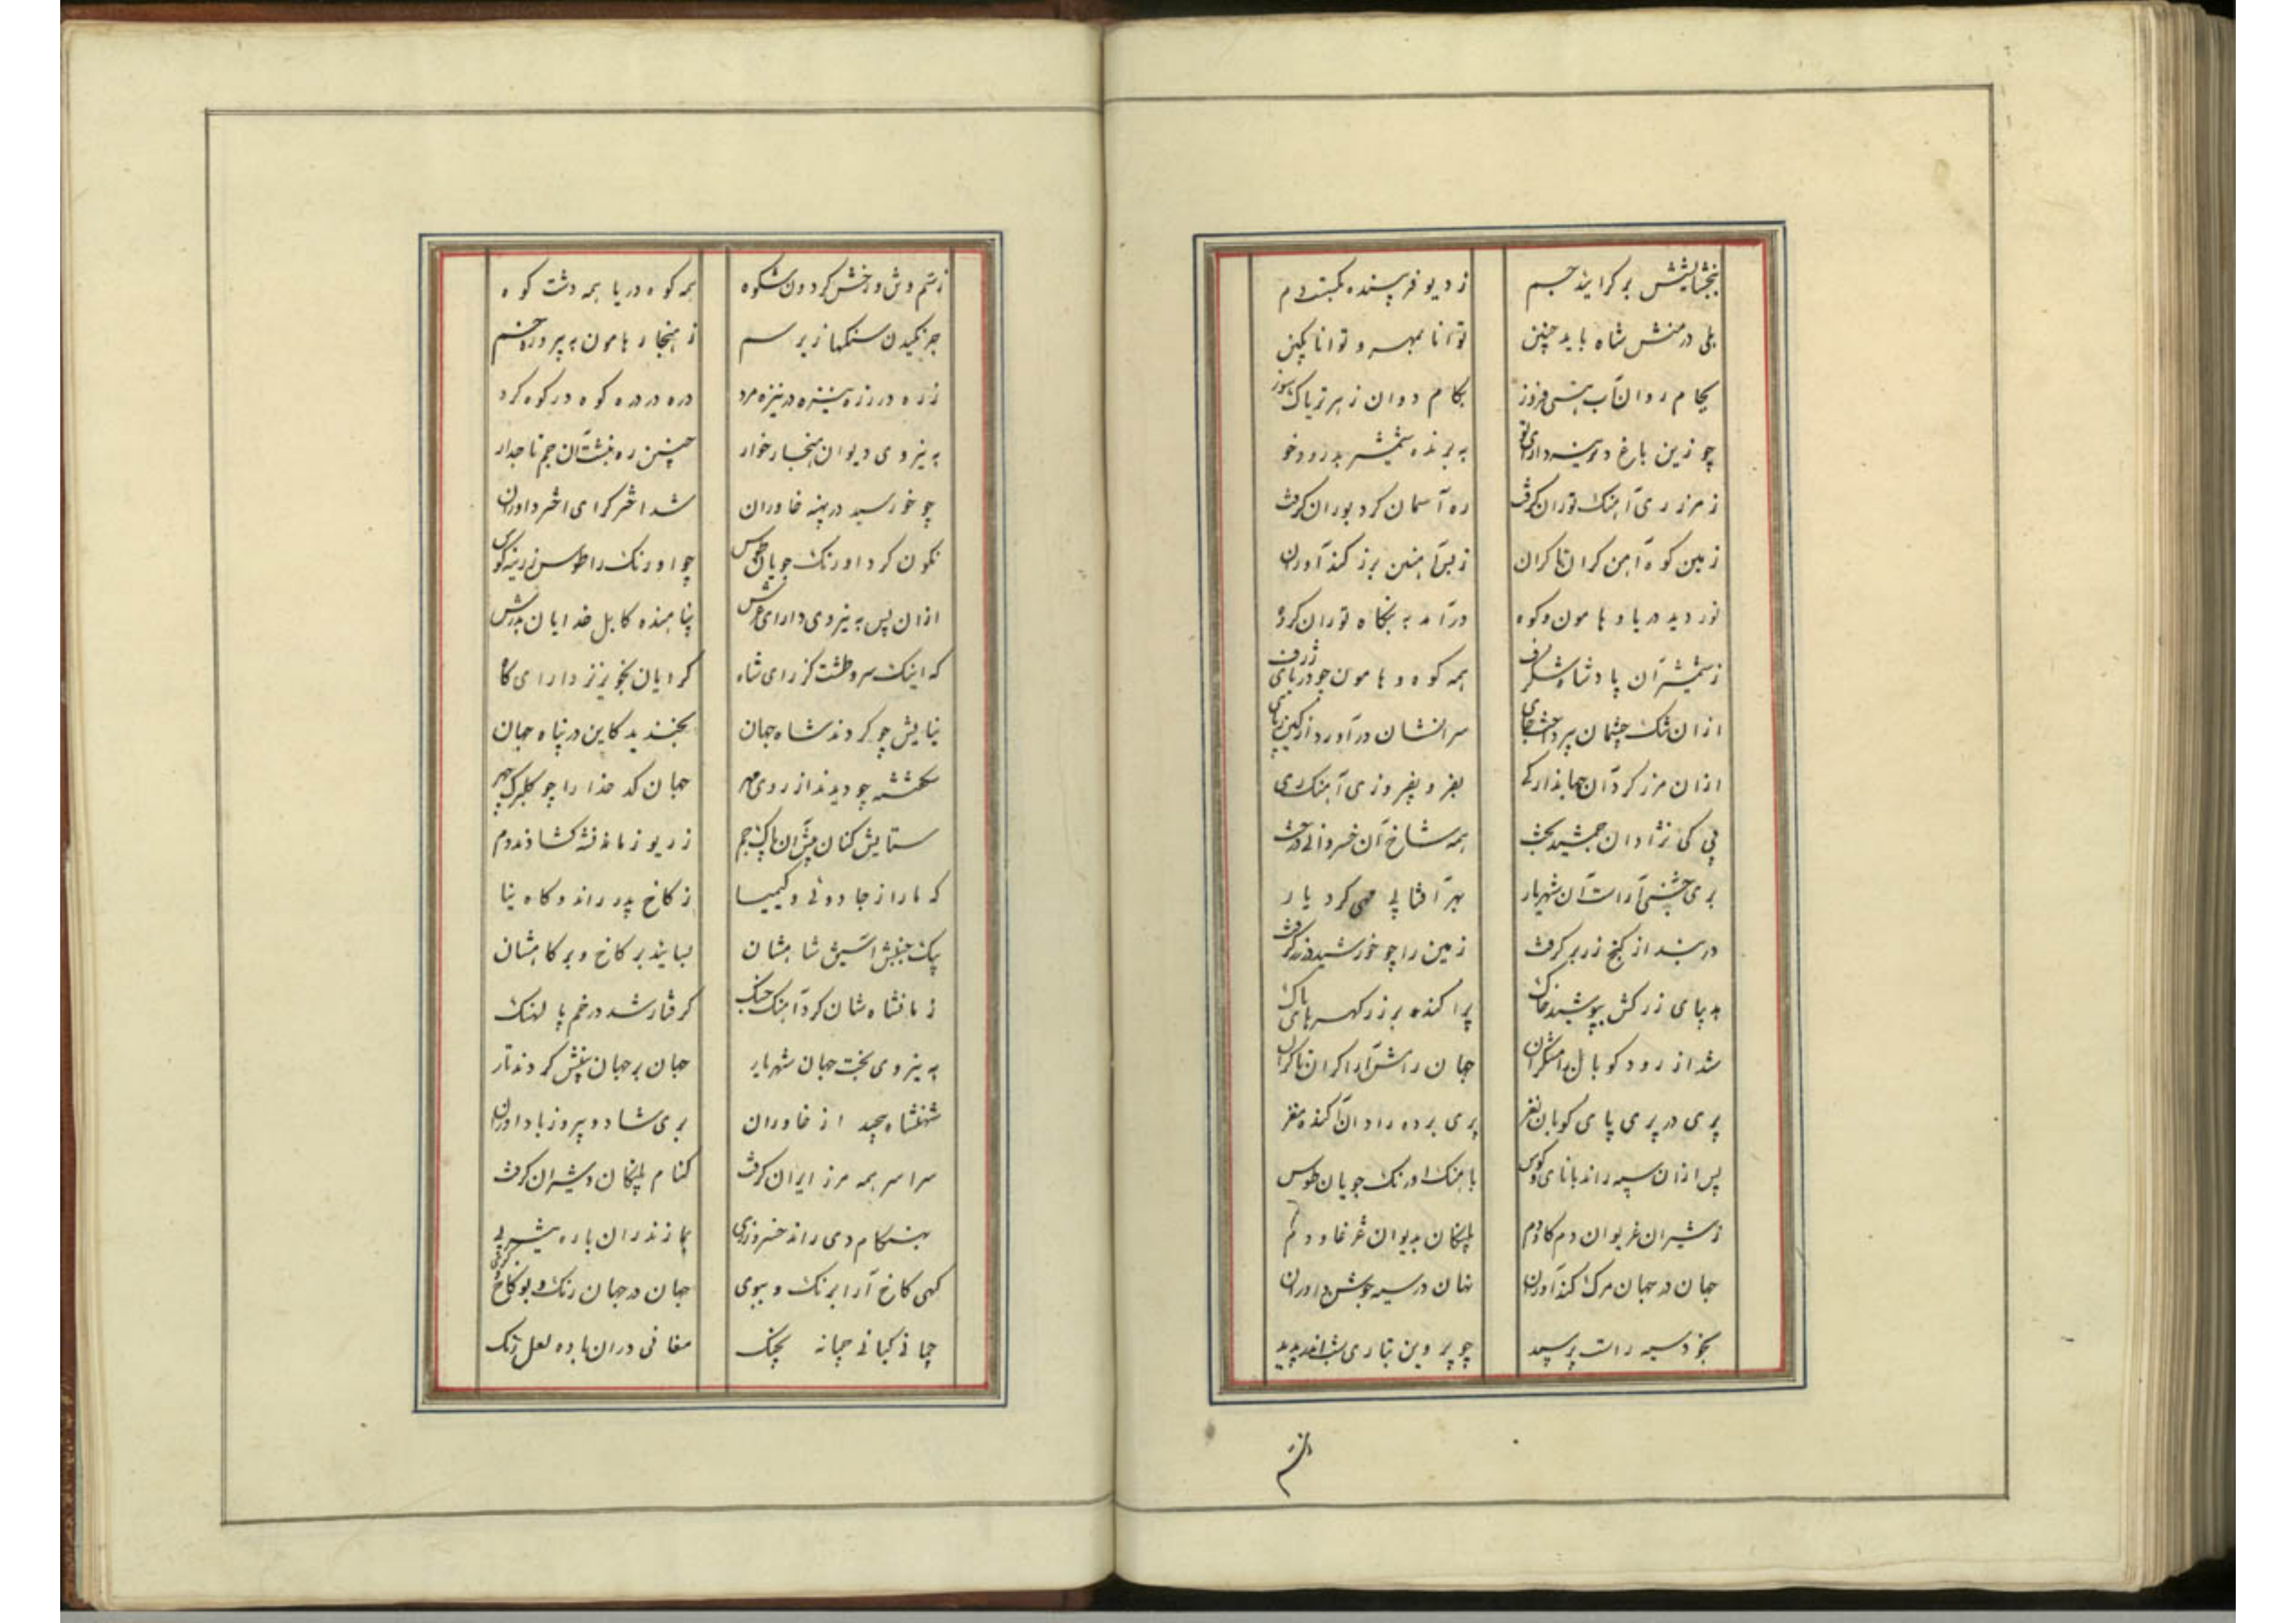 ببخشایشش بر گرایند جسم ز دیو فریبنده بگسست دم
بلی در منش شاه باید چنین توانا بمهر و توانا بکین
بکام روان آب هستی فروز بکام دوان زهر تریاک سوز
چو زین باغ به برنده شمشیر بدرود خو
ز مرز ری آهنگ توران گرفت ره آسمان گرد بوران گرفت
زمین کوه آهن کران تا کران ز بس آهنین برز کندآوران
نوردید دریا و هامون و کوه درآمد به بنگاه توران گروه
ز شمشیر آن پادشاه شگرف همه کوه و هامون چو دریای ژرف
ازان تنگ چشمان بپرداخت جای سرانشان درآورد از کین بپای
ازان مرز گرد آن جهاندار کی بفر و بفیروزی آهنگ ری
پی کی نژادان جمشید بخت همه شاخ آن خسروانی درخت
بری جشنی آراست آن شهریار بهر آفتابی مهی کرد یار
در بسد از گنج زر بر گرفت زمین را چو خورشید در زر گرفت
بدیبای زرکش بپوشید خاک پراکنده بر زر گهرهای پاک
شد از رود کوبان رامشگران جهان رامش آرا کران تا کران
پری در پری پای کوبان نغز پری برده رادان آکنده مغز
پس ازان سپه راند با نای و کوس بآهنگ اورنگ جویان طوس
ز شیران غریوان دم گاودم پلنگان بدیوان غرغاو دم
جهان در جهان مرگ کندآوران نهان در سیه جوش داوران
چو پروین بتاری شب آمد پدید
رستم
ز ستم وش و رخش گردون شکوه همه کوه دریا همه دشت کوه
جرنگیدن سنگها زیر سم ز هنجار هامون به پیر دره خم
زره در زره نیزه در نیزه مرد دره در دره کوه در کوه گرد
به نیروی دیوان هنجار خوار چنین ره نبشت آن جم تاجدار
چو خورشید در پهنه خاوران شد اختر گرای اختر داوران
نگون کرد اورنگ جویان طوس چو اورنگ را طوس زرینه کوس
ازان پس به نیروی دارای عرش پناهنده کابل خدایان بدرش
که اینک سر و طشت گر رای شاه گرایان بخونریز دارای گاه
نیایش چو کردند شاه جهان بخندید کاین در پناه جهان
سگشته چو دیدند از روی مهر جهان کدخدا را چو گلبرگ چهر
ستایش کنان پیش آن پاک جم ز ریو زمانه گشادند دم
که ما را ز جادوئی و کیمیا ز کاخ پدر راند و گاه نیا
بیک جنبش اسپش شاهنشان بسایند بر کاخ و بر گاهشان
زمانشاه شان کرد آهنگ جنگ گرفتار شد در خم پالهنگ
به نیروی بخت جهان شهریار جهان بر جهان بینش کردند تار
شهنشاه چمید از خاوران بری شاد و پیروز با داوران
سراسر همه مرز ایران گرفت کنام پلنگان و شیران گرفت
بهنگام دی راند خسرو ز ری بمازندران باره شیر پی
گهی کاخ آرا برنگ و ببوی جهان در جهان رنگ و بو کاخ و کوی
چمانی کیانی چمانه بچنگ مغانی دران باده لعل رنگ